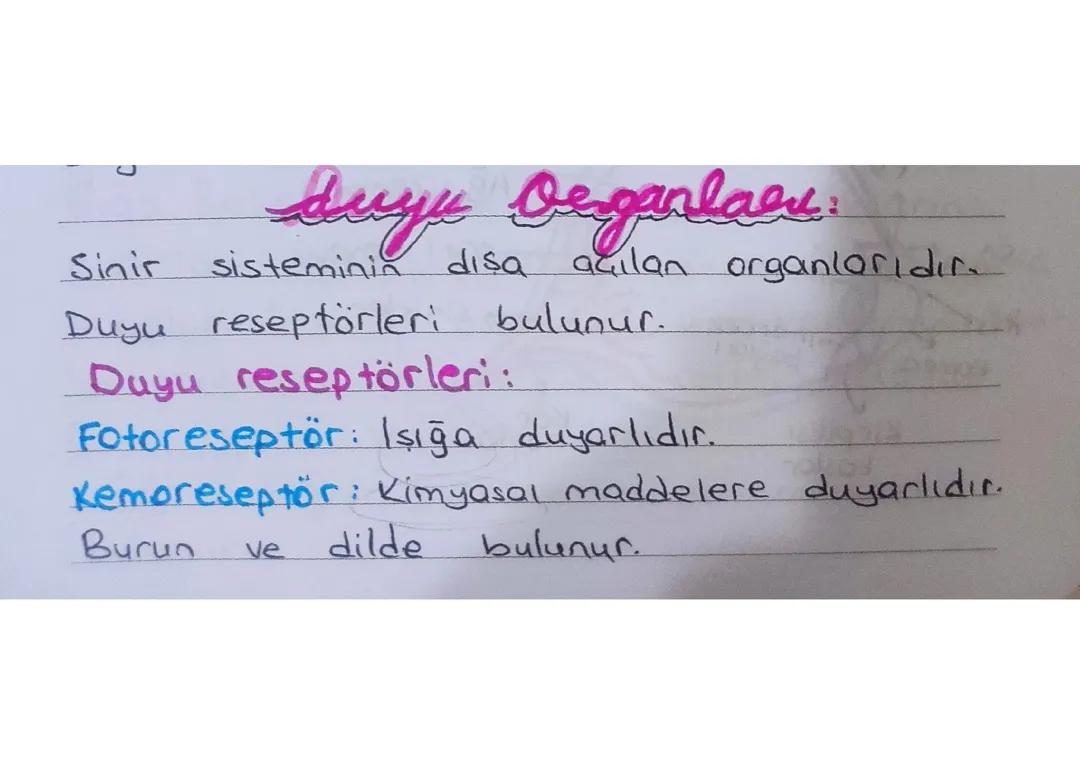 Duyu Organları:
Sinir sisteminin dışa açılan organlarıdır.
Duyu reseptörleri bulunur.
Duyu reseptörleri:
Fotoreseptör: Işığa duyarlıdır.
Kemoreseptör: Kimyasal maddelere duyarlıdır.
Burun ve dilde bulunur.